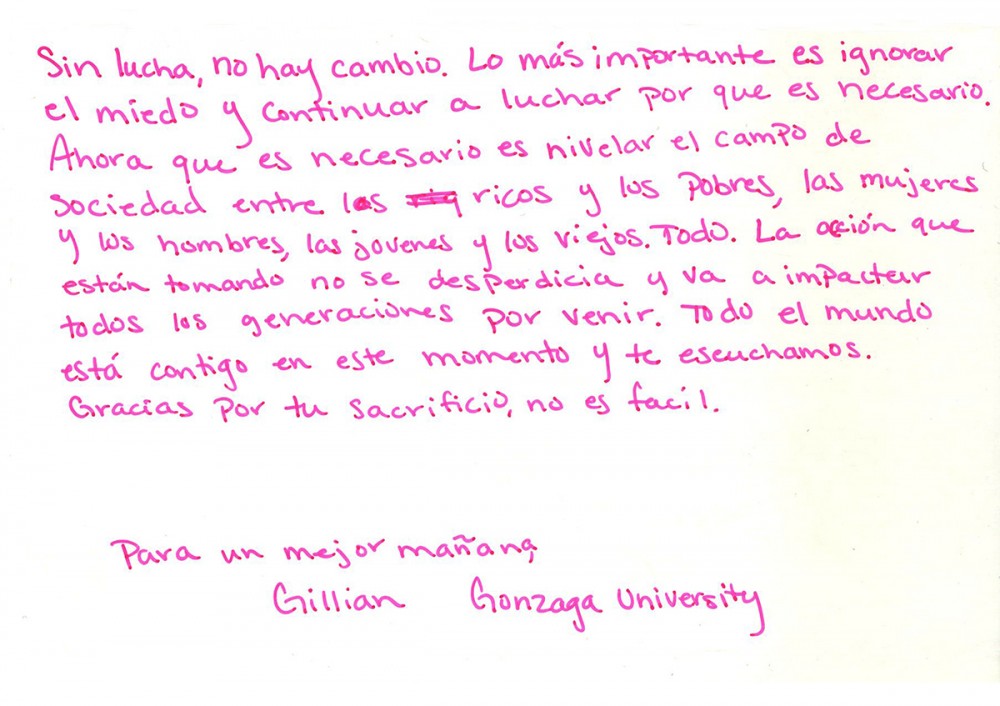 Sin lucha, no hay cambio. Lo más importante es ignorar
el miedo y continuar a luchar por que es necesario.
Ahora que es necesario es nivelar el campo de
sociedad entre los ricos y los pobres, las mujeres
y los hombres, las jovenes y los viejos. Todo. La acción que
están tomando no se desperdicia y va a impactar
todos los generaciones por venir. Todo el mundo
está contigo en este momento y te escuchamos.
Gracias por tu sacrificio, no es facíl.
Para un mejor mañana,
Gillian Gonzaga University